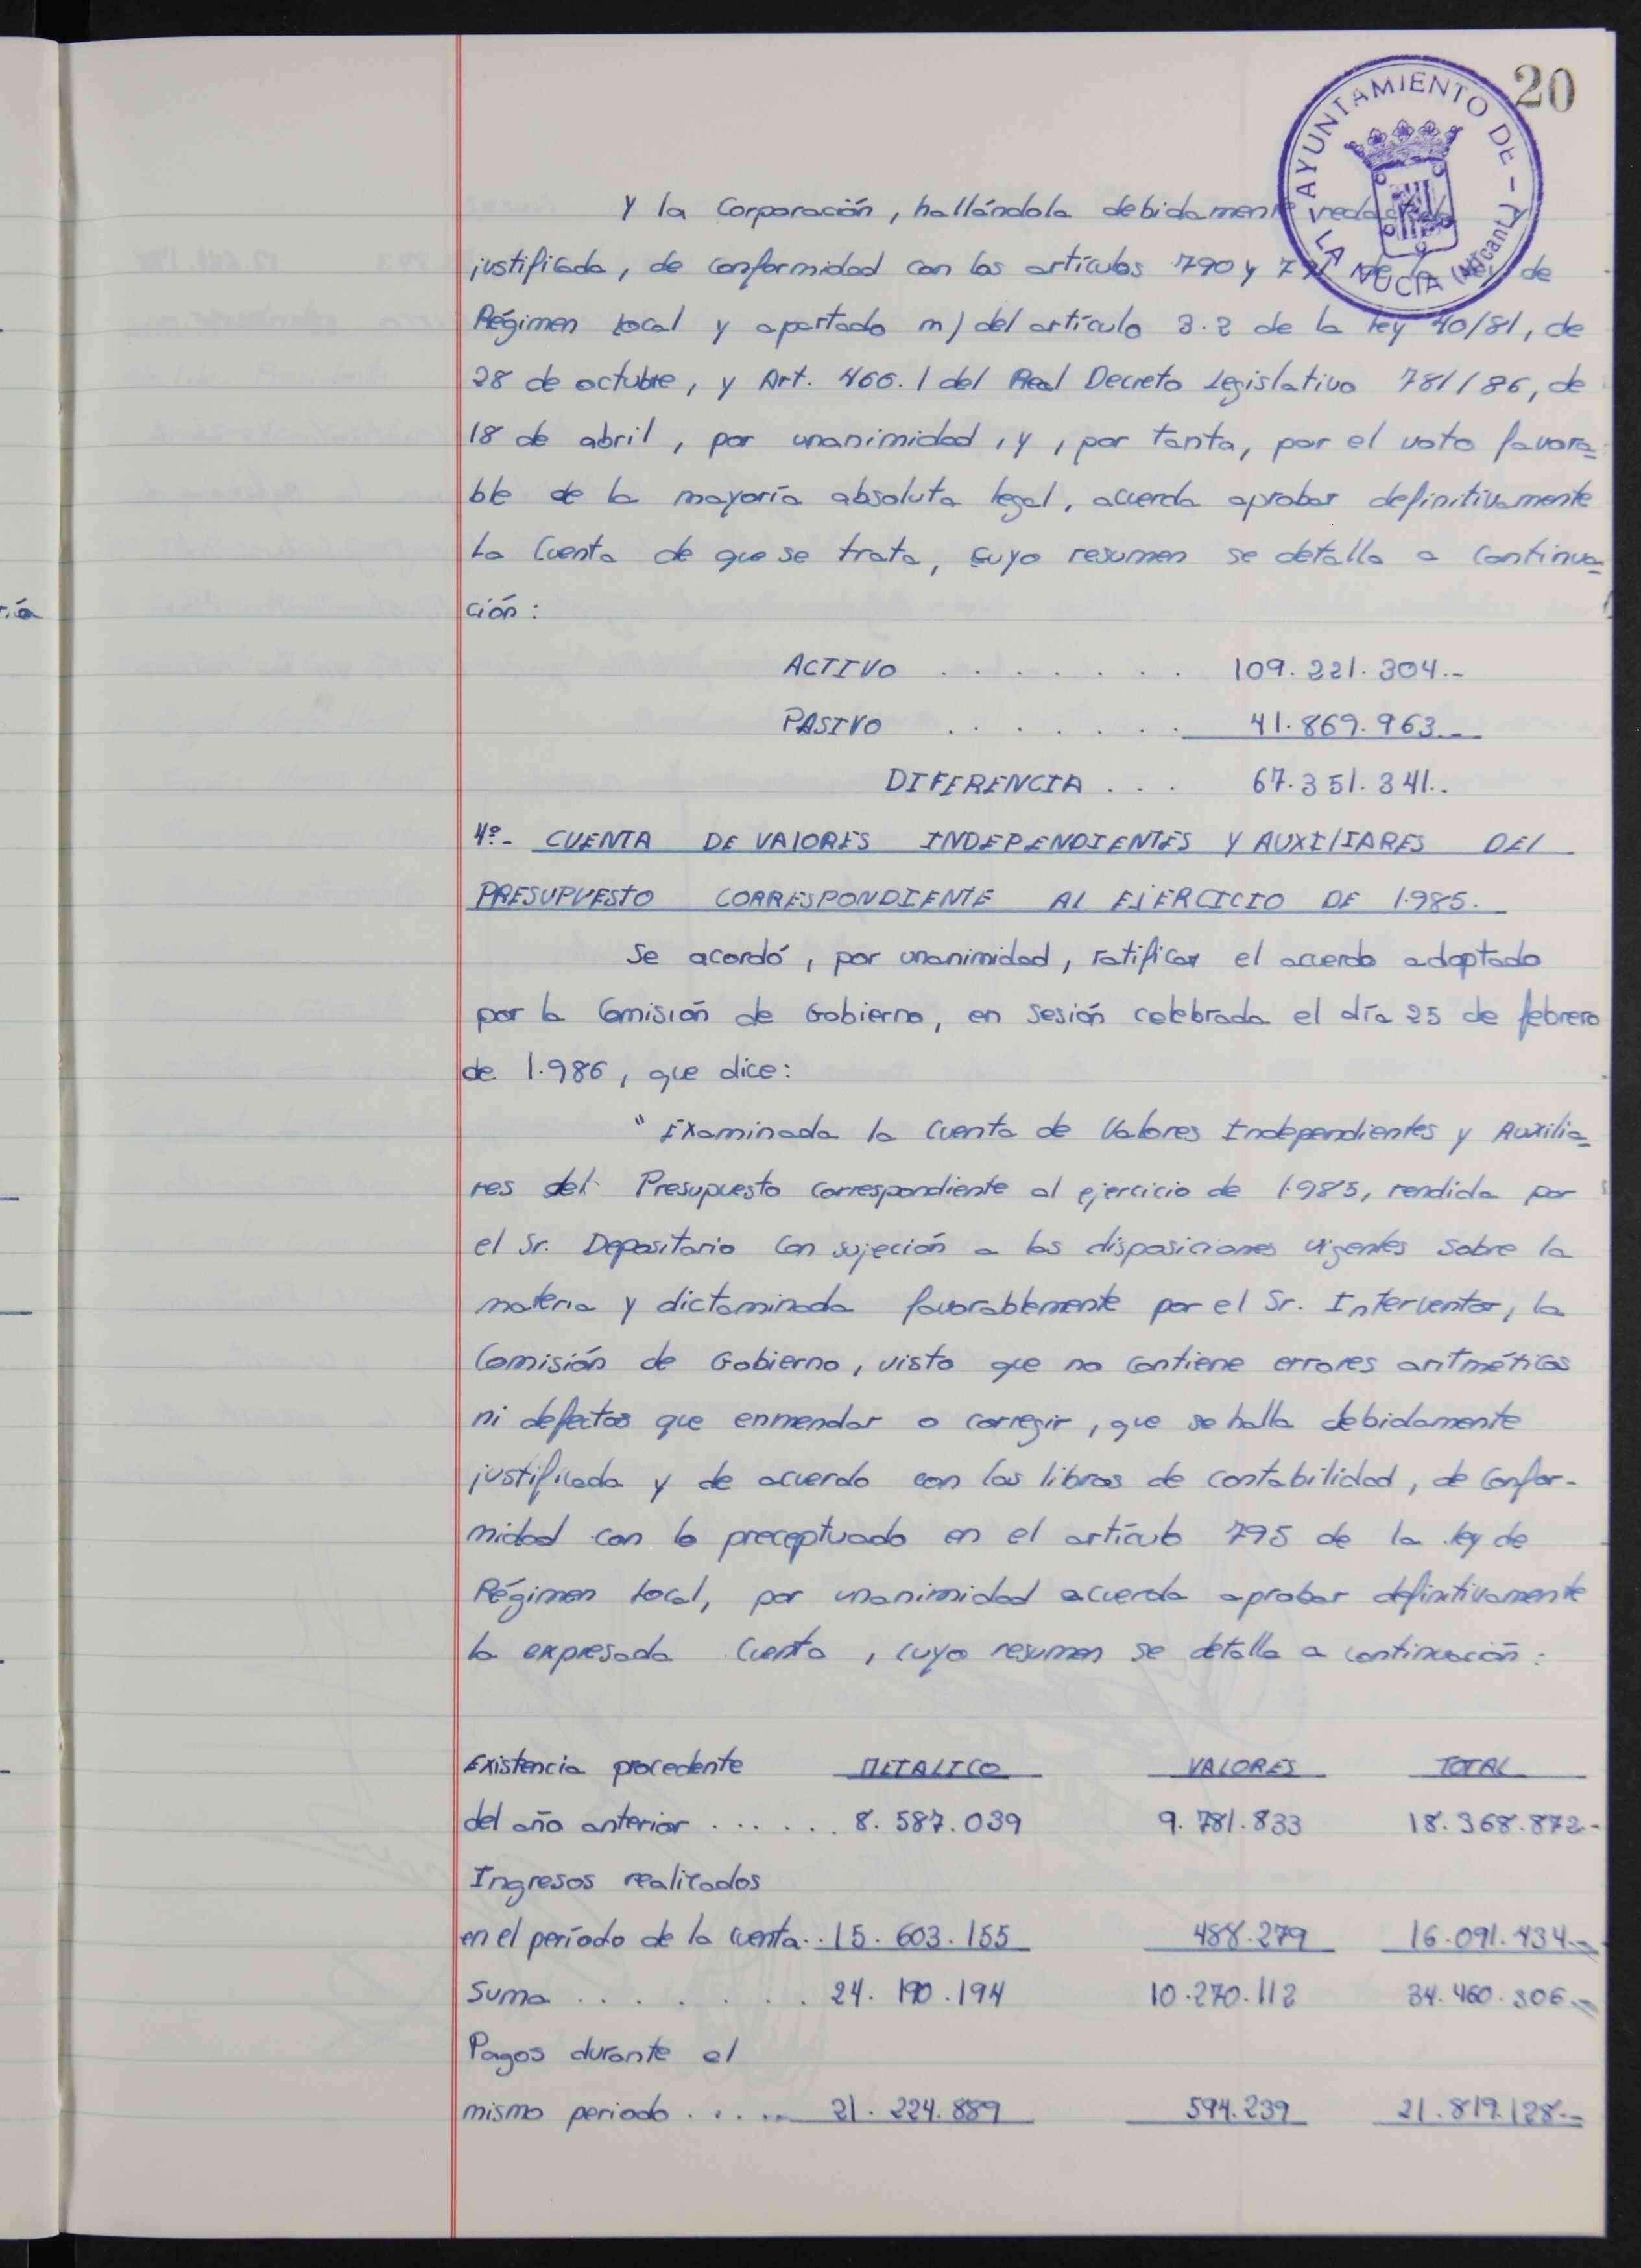 20
AYUNTAMIENTO DE - LA NUCIA (Alicante)
Y la Corporación, hallándola debidamente
justificada, de conformidad con los artículos 790 y de
Régimen Local y apartado m) del artículo 3.2 de la Ley 40/81, de
28 de octubre, y Art. 466.1 del Real Decreto Legislativo 781/86, de
18 de abril, por unanimidad, y, por tanto, por el voto favora=
ble de la mayoría absoluta legal, acuerda aprobar definitivamente
La Cuenta de que se trata, cuyo resumen se detalla a continua=
ción:
ACTIVO . . . . . . . 109.221.304.-
PASIVO . . . . . . . 41.869.963.-
DIFERENCIA . . . 67.351.341.-
4º.- CUENTA DE VALORES INDEPENDIENTES Y AUXILIARES DEL
PRESUPUESTO CORRESPONDIENTE AL EJERCICIO DE 1.985.
Se acordó, por unanimidad, ratificar el acuerdo adoptado
por la Comisión de Gobierno, en sesión celebrada el día 25 de febrero
de 1.986, que dice:
" Examinada la Cuenta de Valores Independientes y Auxilia=
res del Presupuesto correspondiente al ejercicio de 1.985, rendida por
el Sr. Depositario con sujeción a las disposiciones vigentes sobre la
materia y dictaminada favorablemente por el Sr. Interventor, la
Comisión de Gobierno, visto que no contiene errores aritméticos
ni defectos que enmendar o corregir, que se halla debidamente
justificada y de acuerdo con los libros de contabilidad, de confor-
midad con lo preceptuado en el artículo 795 de la Ley de
Régimen Local, por unanimidad acuerda aprobar definitivamente
la expresada Cuenta, cuyo resumen se detalla a continuación:
Existencia procedente METALICO VALORES TOTAL
del año anterior . . . . . . 8.587.039 9.781.833 18.368.872.-
Ingresos realizados
en el período de la cuenta.. 15.603.155 488.279 16.091.434.-
Suma . . . . . . . 24.190.194 10.270.112 34.460.306.-
Pagos durante el
mismo periodo . . . . . 21.224.889 594.239 21.819.128.-